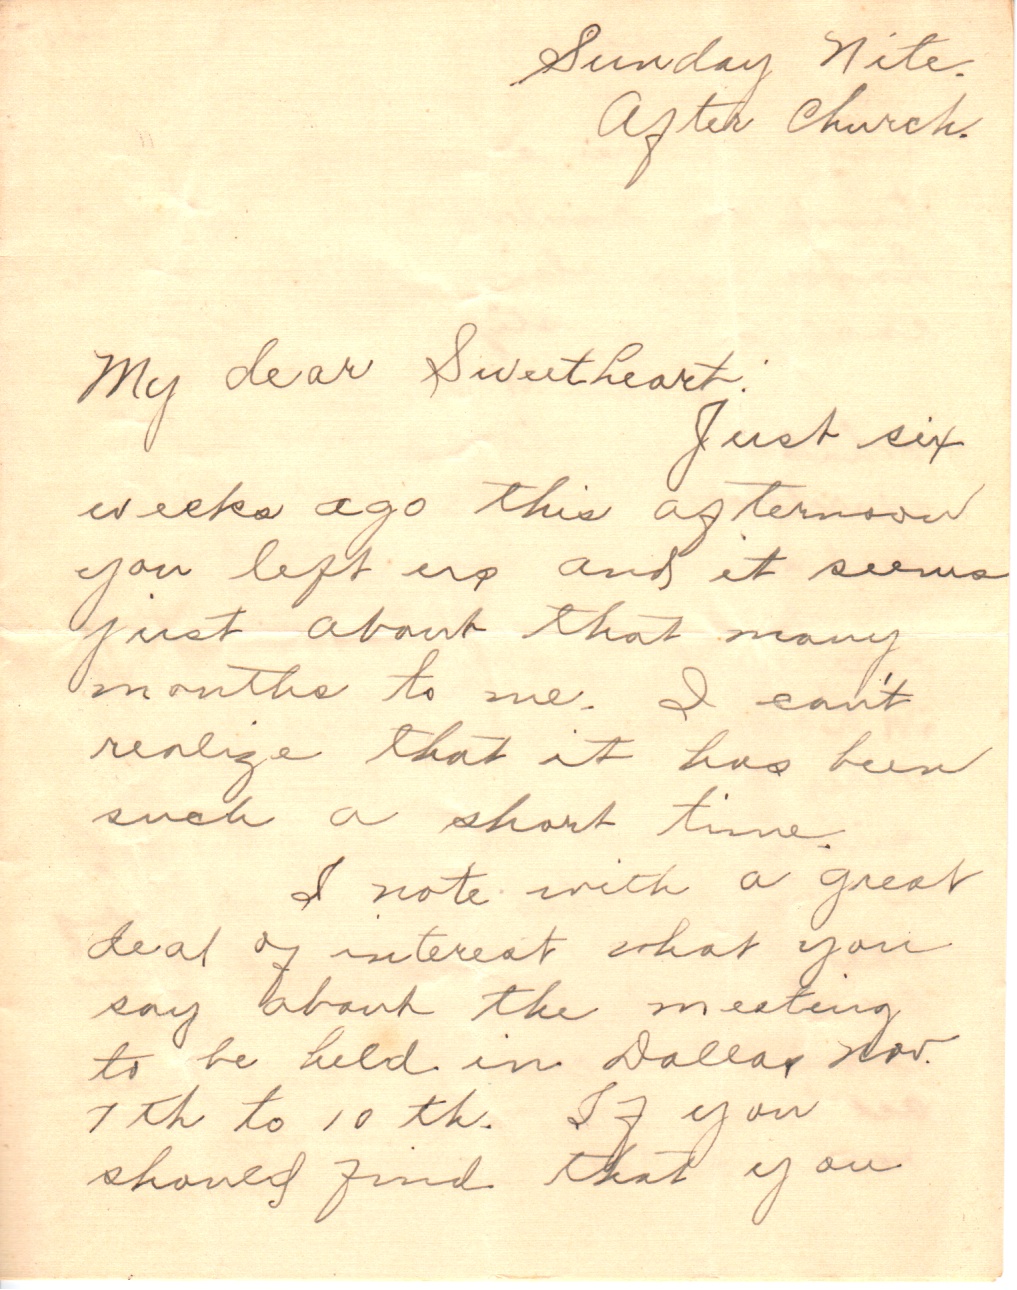 Sunday Nite.
After Church.
My dear Sweetheart:
Just six
weeks ago this afternoon
you left us and it seems
just about that many
months to me. I can't
realize that it has been
such a short time.
I note with a great
deal of interest what you
say about the meeting
to be held in Dallas Nov.
7th to 10th. If you
should find that you